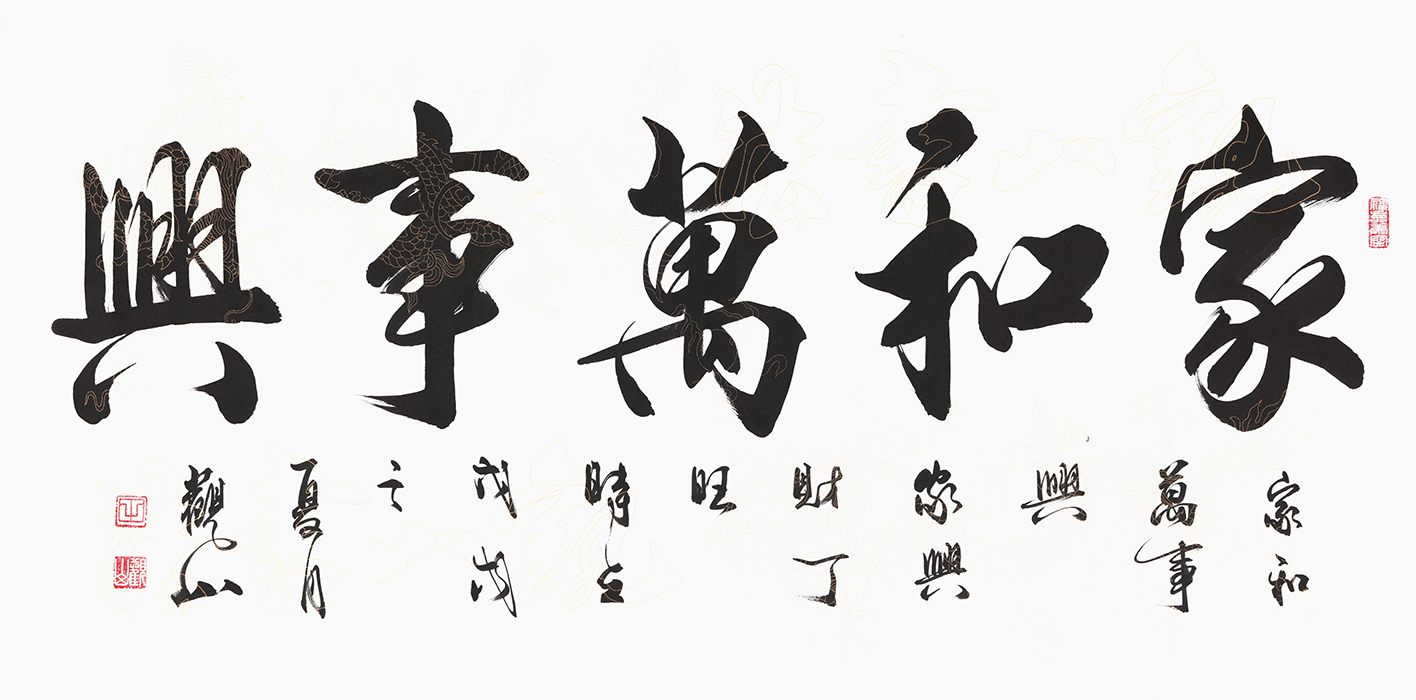 家和萬事興
家和
萬事
興
家興
財丁
旺
時在
戊戌
之
夏月
觀山
觀山